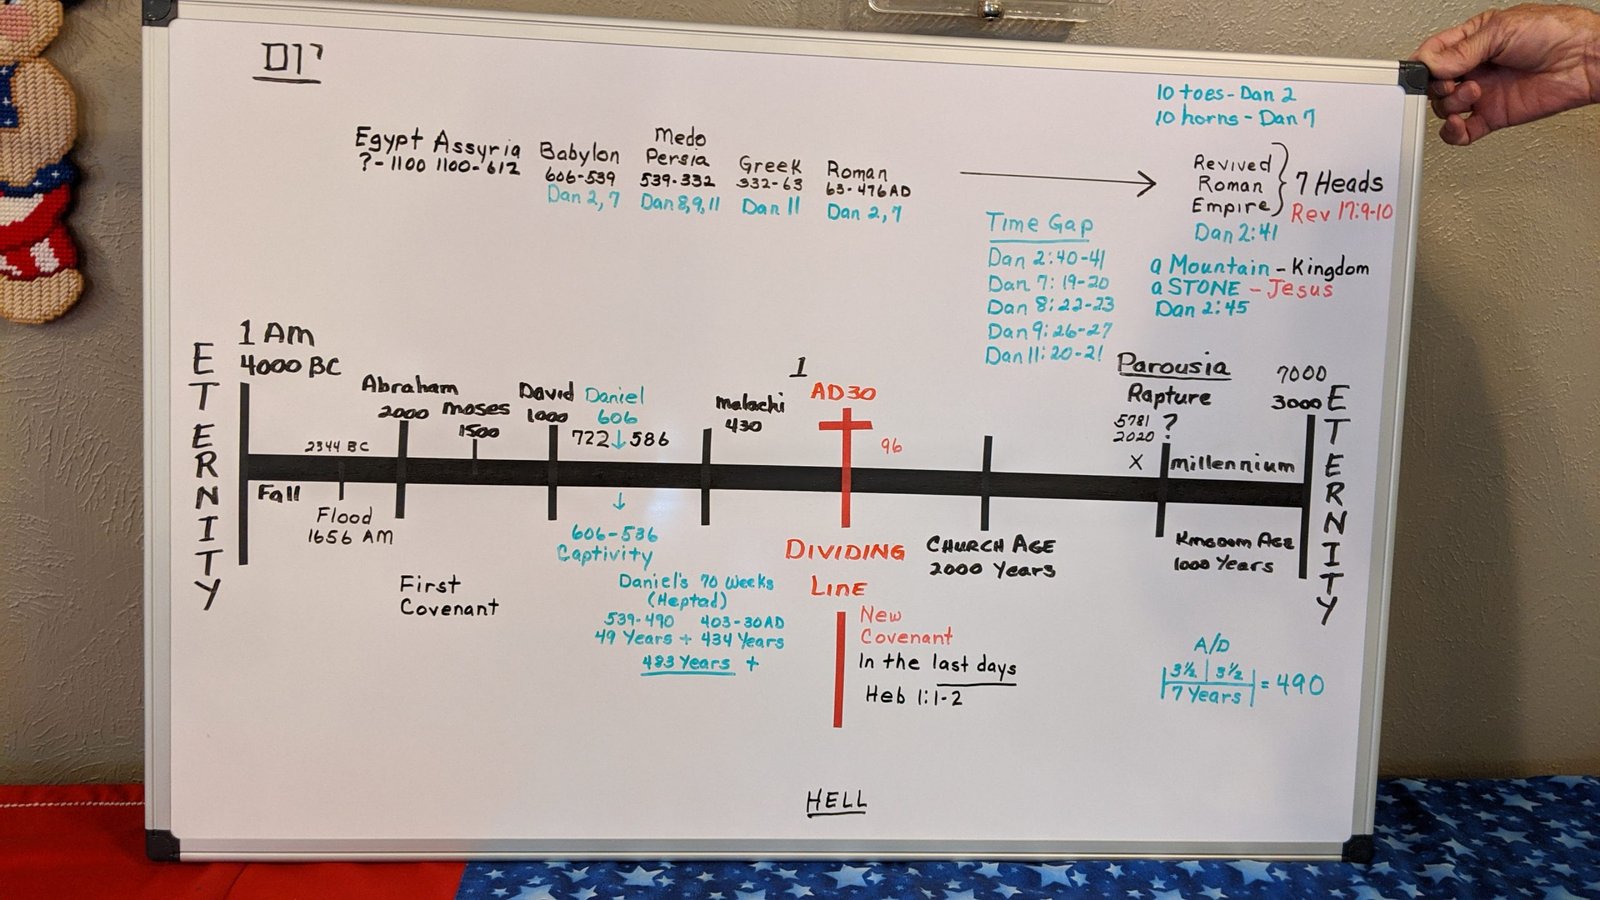 10 toes - Dan 2
10 horns - Dan 7
Egypt Assyria
?- 1100 1100-612
Babylon
606-539
Dan 2, 7
Medo
Persia
539-332
Dan 8,9,11
Greek
332-63
Dan 11
Roman
63-476 AD
Dan 2, 7
Revived
Roman
Empire
Dan 2:41
7 Heads
Rev 17:9-10
Time Gap
Dan 2:40-41
Dan 7:19-20
Dan 8:22-23
Dan 9:26-27
Dan 11:20-21
a Mountain - Kingdom
a STONE - Jesus
Dan 2:45
ETERNITY
1 Am
4000 BC
Fall
2344 BC
Flood
1656 AM
Abraham
2000
Moses
1500
David
1000
Daniel
606
722 ↓ 586
malachi
430
1
AD 30
96
Parousia
Rapture
5781 ?
2020
X
millennium
7000
3000
ETERNITY
First
Covenant
606-536
Captivity
Daniel's 70 Weeks
(Heptad)
539-490 403-30AD
49 Years + 434 Years
483 Years +
DIVIDING
LINE
New
Covenant
In the last days
Heb 1:1-2
CHURCH AGE
2000 Years
Kingdom Age
1000 Years
A/D
3½ | 3½
7 Years = 490
HELL